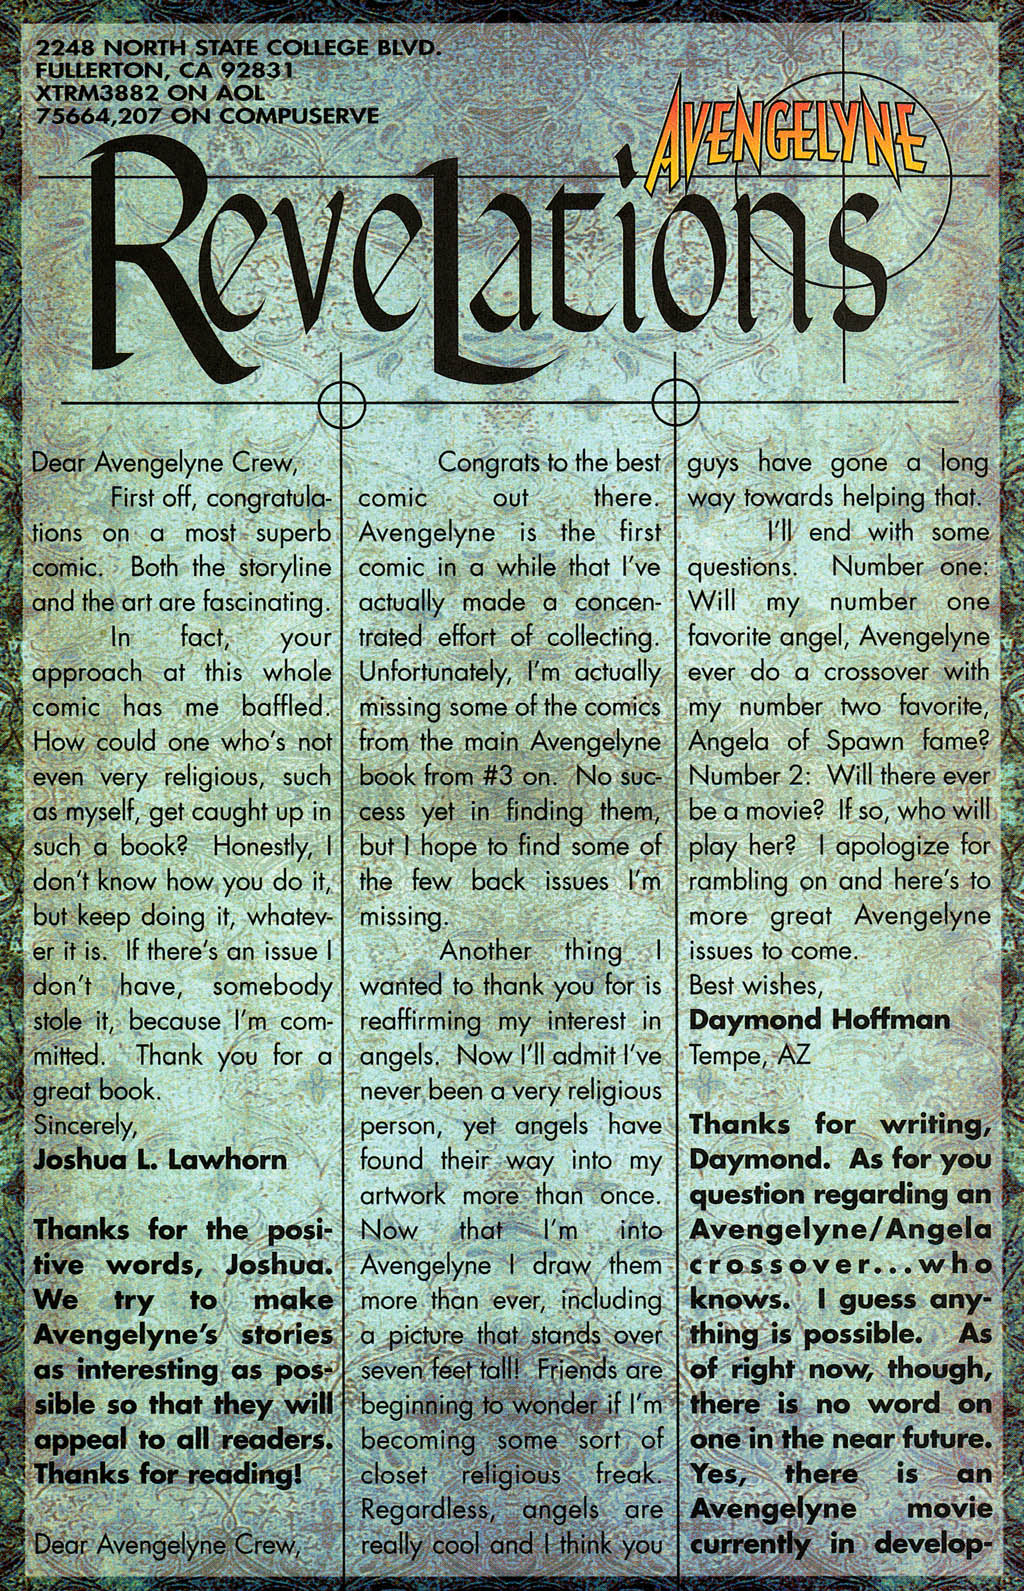 2248 NORTH STATE COLLEGE BLVD.
FULLERTON, CA 92831
XTRM3882 ON AOL
75664,207 ON COMPUSERVE
AVENGELYNE
Revelations
Dear Avengelyne Crew,
First off, congratula-
tions on a most superb
comic. Both the storyline
and the art are fascinating.
In fact, your
approach at this whole
comic has me baffled.
How could one who's not
even very religious, such
as myself, get caught up in
such a book? Honestly, I
don't know how you do it,
but keep doing it, whatev-
er it is. If there's an issue I
don't have, somebody
stole it, because I'm com-
mitted. Thank you for a
great book.
Sincerely,
Joshua L. Lawhorn
Thanks for the posi-
tive words, Joshua.
We try to make
Avengelyne's stories
as interesting as pos-
sible so that they will
appeal to all readers.
Thanks for reading!
Dear Avengelyne Crew,
Congrats to the best
comic out there.
Avengelyne is the first
comic in a while that I've
actually made a concen-
trated effort of collecting.
Unfortunately, I'm actually
missing some of the comics
from the main Avengelyne
book from #3 on. No suc-
cess yet in finding them,
but I hope to find some of
the few back issues I'm
missing.
Another thing I
wanted to thank you for is
reaffirming my interest in
angels. Now I'll admit I've
never been a very religious
person, yet angels have
found their way into my
artwork more than once.
Now that I'm into
Avengelyne I draw them
more than ever, including
a picture that stands over
seven feet tall! Friends are
beginning to wonder if I'm
becoming some sort of
closet religious freak.
Regardless, angels are
really cool and I think you
guys have gone a long
way towards helping that.
I'll end with some
questions. Number one:
Will my number one
favorite angel, Avengelyne
ever do a crossover with
my number two favorite,
Angela of Spawn fame?
Number 2: Will there ever
be a movie? If so, who will
play her? I apologize for
rambling on and here's to
more great Avengelyne
issues to come.
Best wishes,
Daymond Hoffman
Tempe, AZ
Thanks for writing,
Daymond. As for you
question regarding an
Avengelyne/Angela
crossover...who
knows. I guess any-
thing is possible. As
of right now, though,
there is no word on
one in the near future.
Yes, there is an
Avengelyne movie
currently in develop-